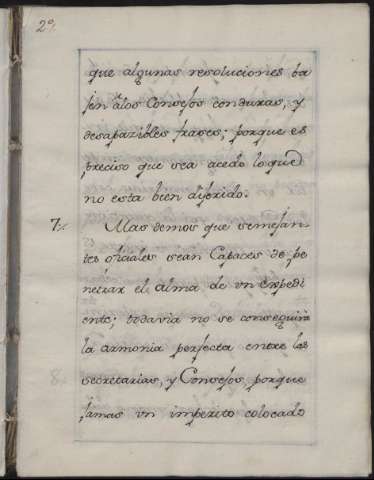 2º
que algunas resoluciones ba
jen â los Consejos con duras, y
desapazibles frases; porque es
preciso que sea acedo lo que
no esta bien dijerido.
7.
Mas demos que semejan
tes oficiales sean Capaces de pe
netrar el alma de un Expedi
ente; todavia no se conseguirà
la armonia perfecta entre las
secretarias, y Consejos, porque
jamas un imperito colocado